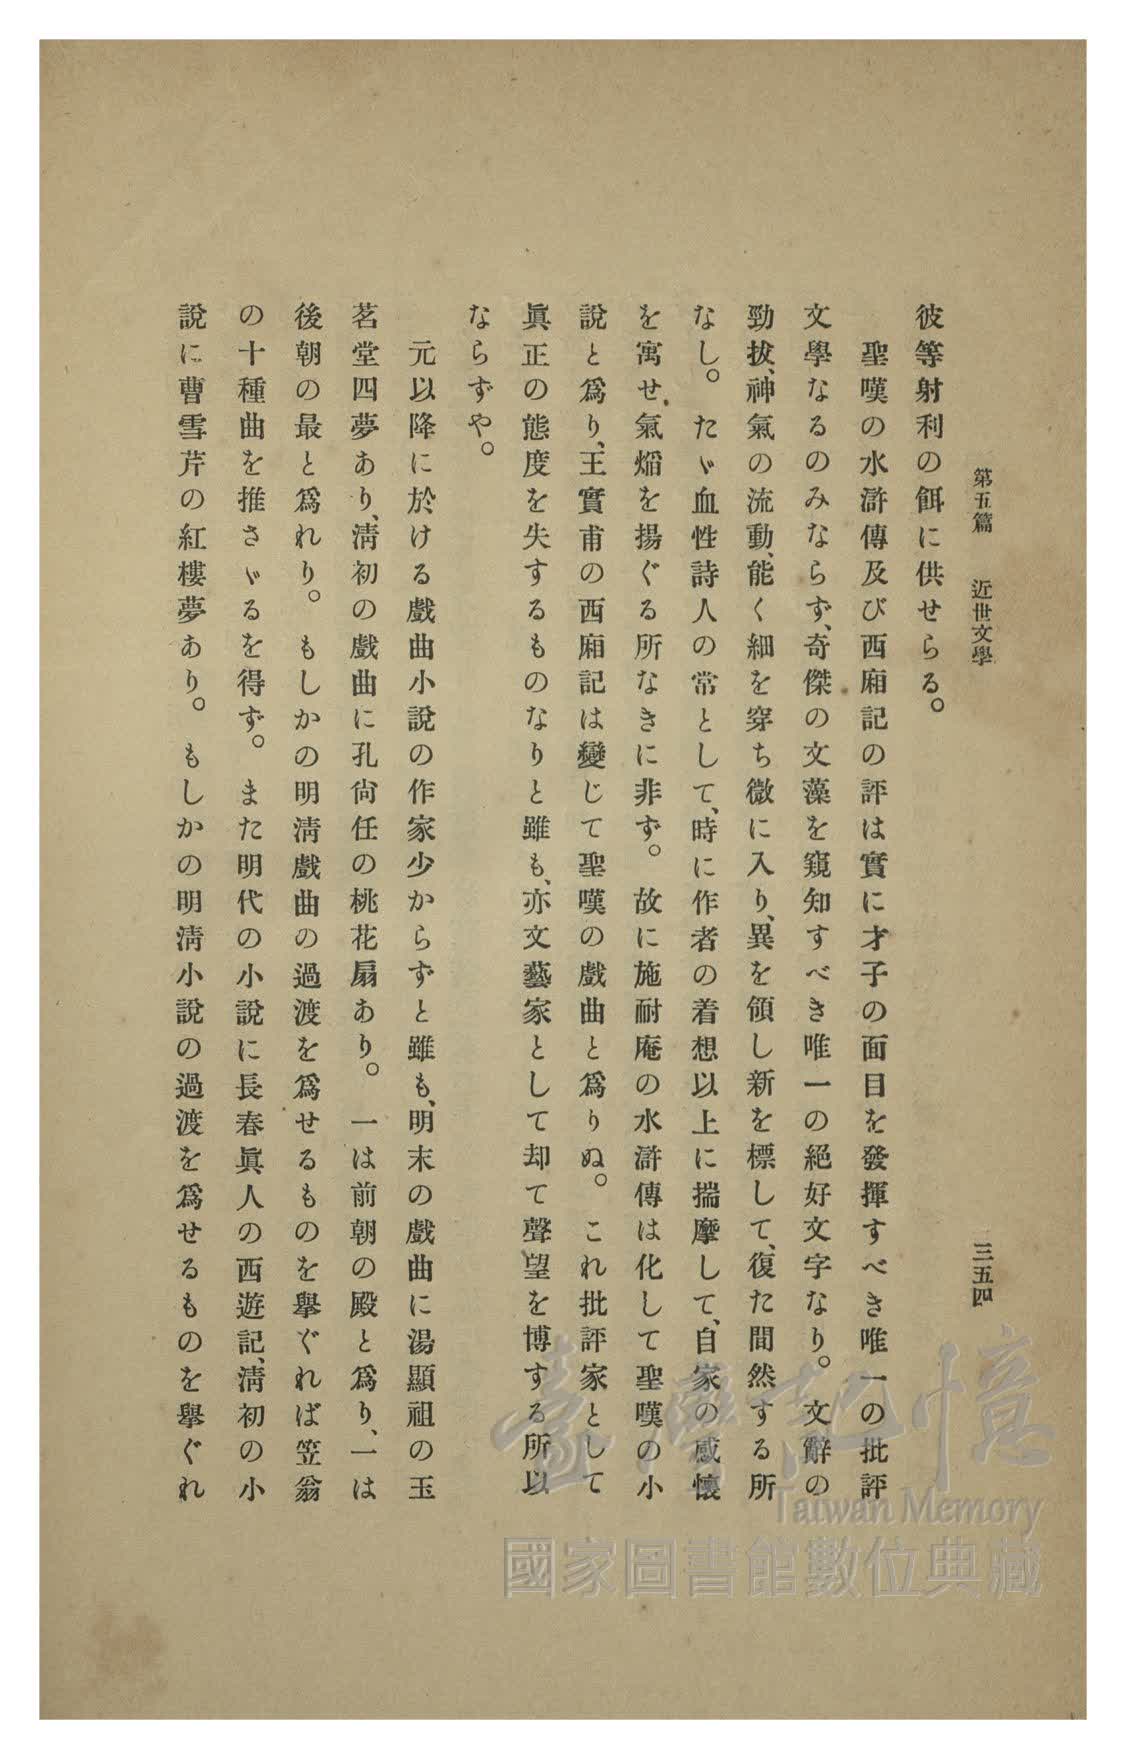 第五篇　近世文學
三五四
彼等射利の餌に供せらる。
聖嘆の水滸傳及び西廂記の評は實に才子の面目を發揮すべき唯一の批評
文學なるのみならず、奇傑の文藻を窺知すべき唯一の絕好文字なり。文辭の
勁拔、神氣の流動、能く細を穿ち微に入り、異を領し新を標して、復た間然する所
なし。たゞ血性詩人の常として、時に作者の着想以上に揣摩して、自家の感懷
を寓せ氣焰を揚ぐる所なきに非ず。故に施耐庵の水滸傳は化して聖嘆の小
說と爲り、王實甫の西廂記は變じて聖嘆の戲曲と爲りぬ。これ批評家として
眞正の態度を失するものなりと雖も、亦文藝家として却て聲望を博する所以
ならずや。
元以降に於ける戲曲小說の作家少からずと雖も、明末の戲曲に湯顯祖の玉
茗堂四夢あり、淸初の戲曲に孔尙任の桃花扇あり。一は前朝の殿と爲り、一は
後朝の最と爲れり。もしかの明淸戲曲の過渡を爲せるものを擧ぐれば笠翁
の十種曲を推さゞるを得ず。また明代の小說に長春眞人の西遊記、淸初の小
說に曹雪芹の紅樓夢あり。もしかの明淸小說の過渡を爲せるものを擧ぐれ
臺灣記憶
Taiwan Memory
國家圖書館數位典藏